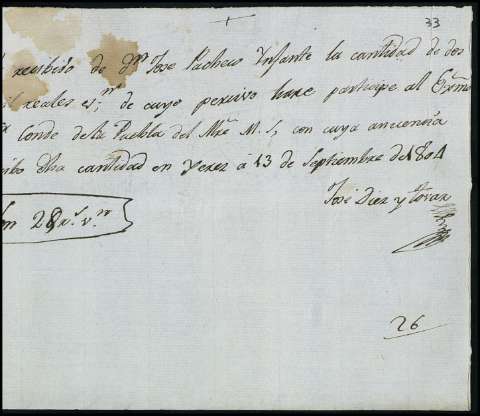 33
recibido de Dn. Jose Pacheco Infante la cantidad de dos
reales de cuyo percivo hare participe al Exmo
Conde de la Puebla del Mre. con cuya anuencia
cibo dha cantidad en Xerez a 13 de Septiembre de 1804
José Diez y Tovar
Rs. vn.
26